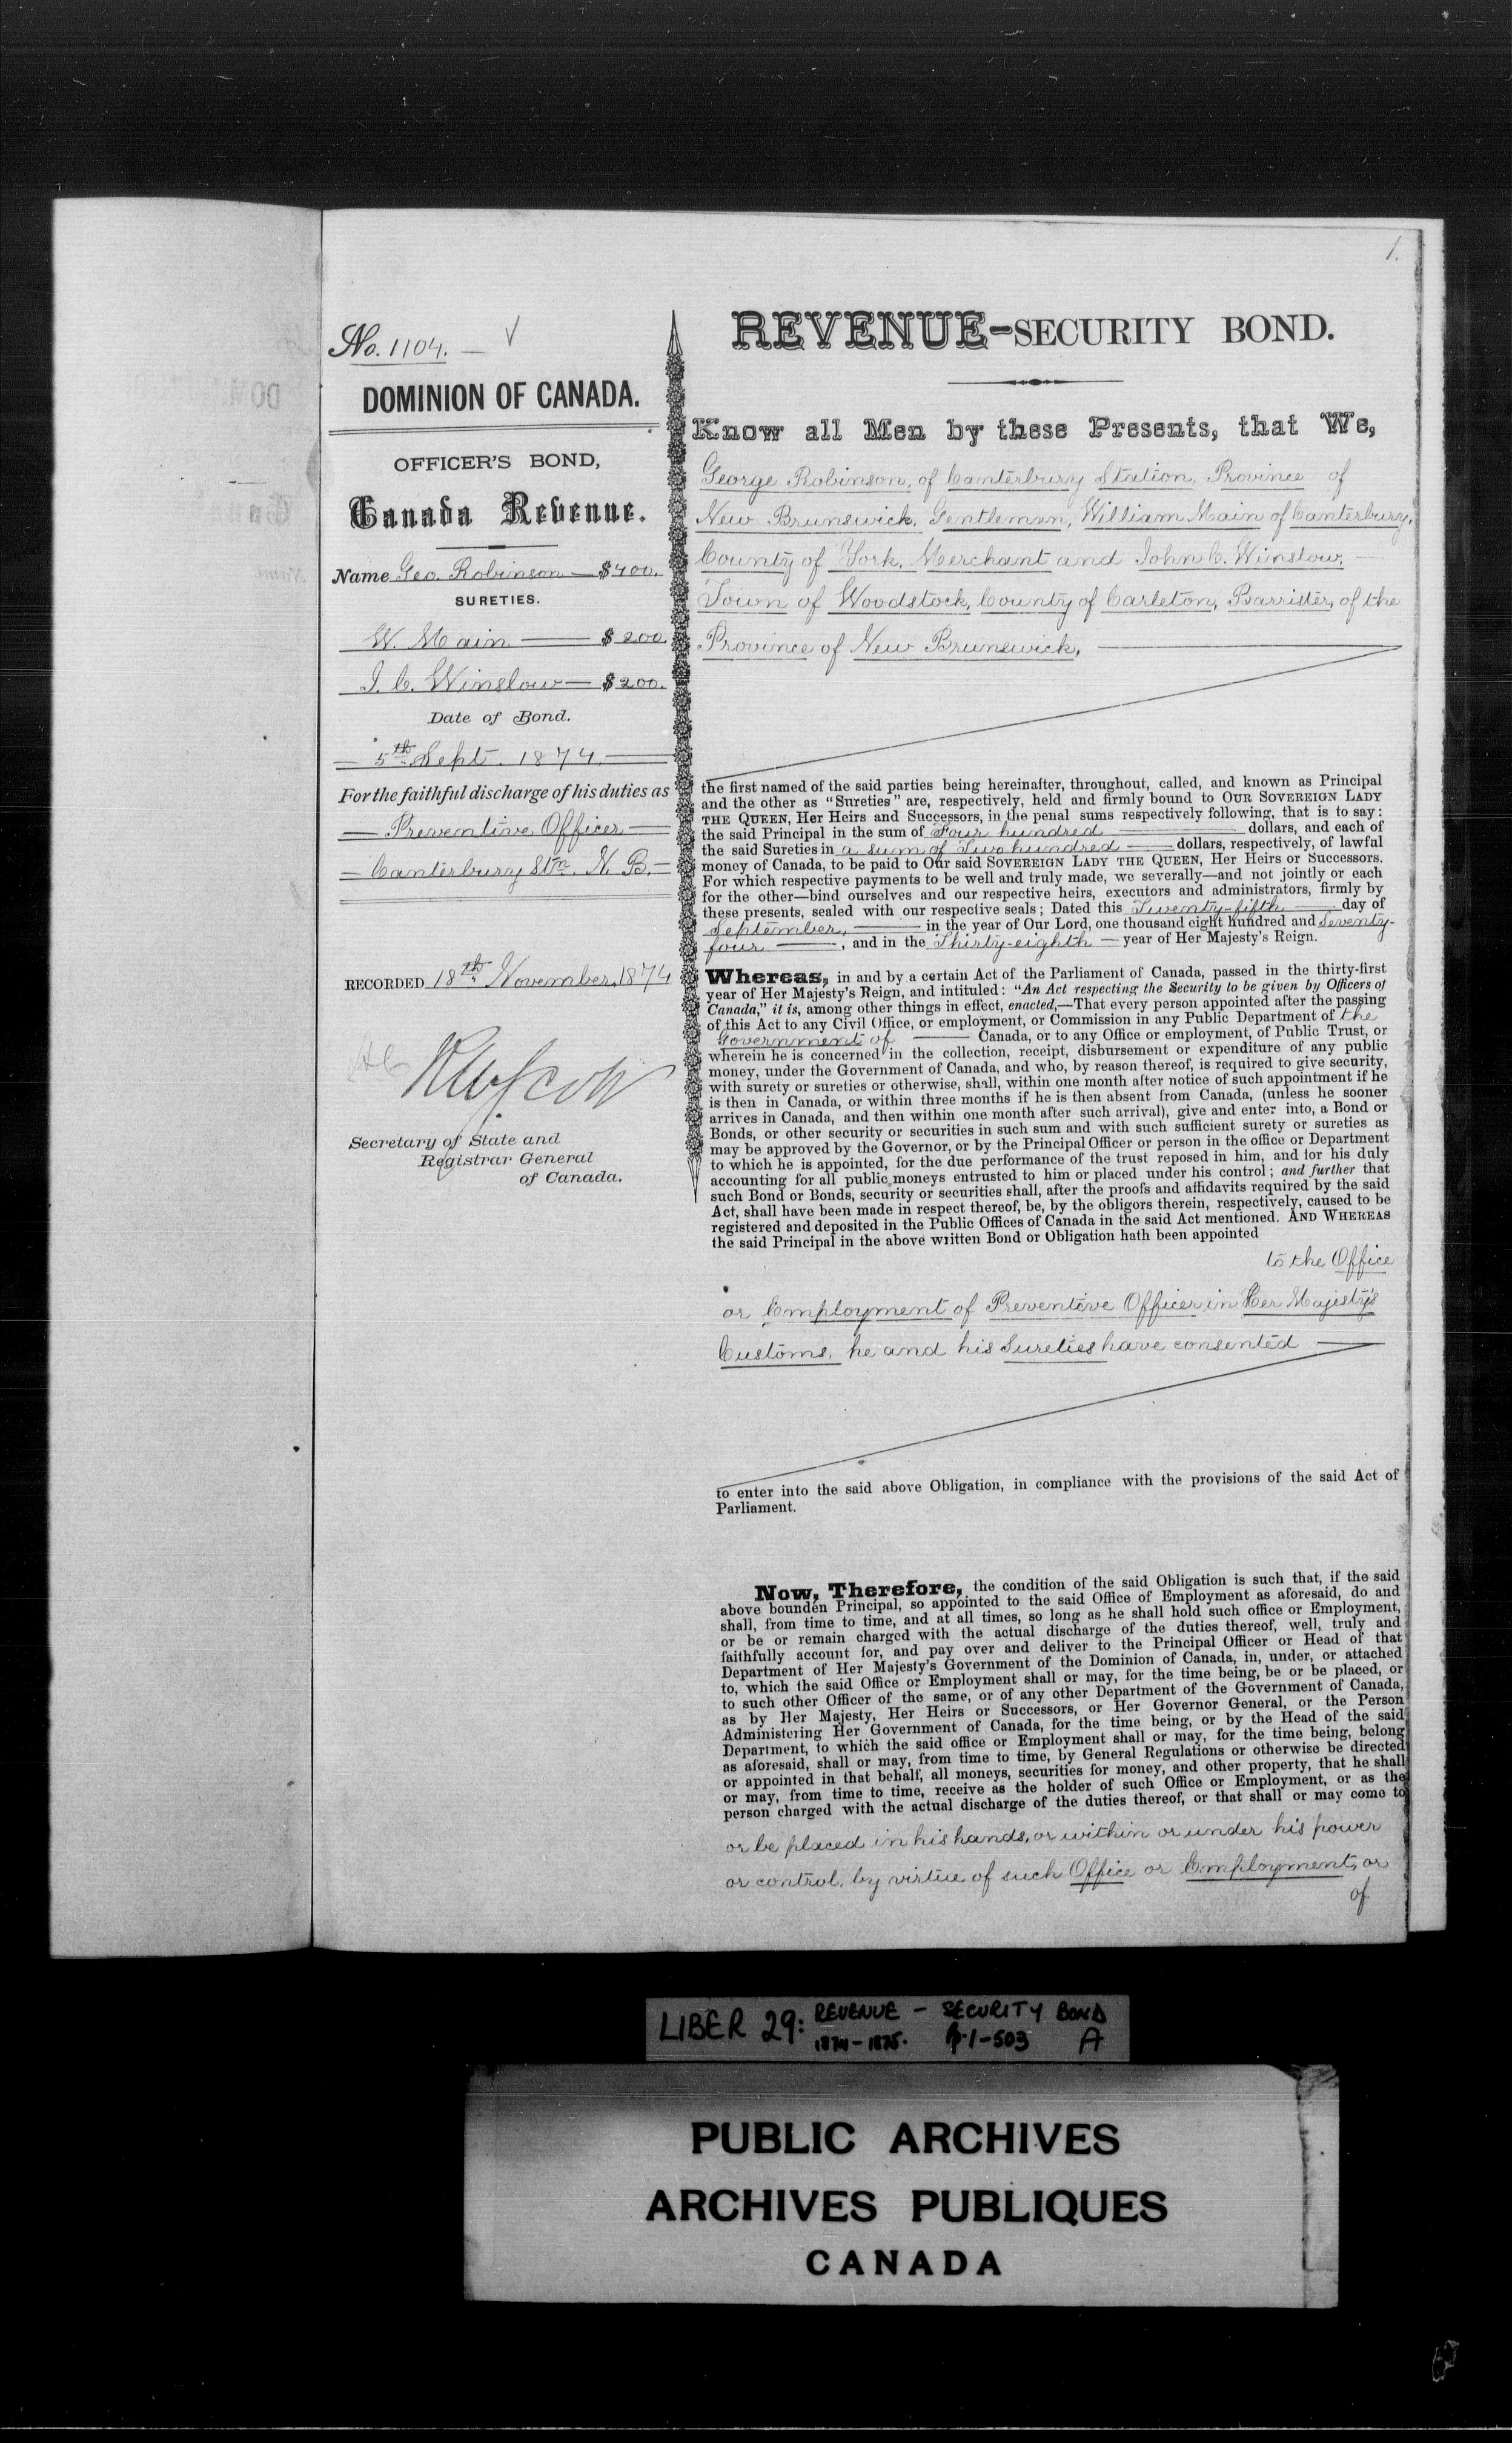 1.
No. 1104. —
DOMINION OF CANADA.
OFFICER'S BOND,
Canada Revenue.
Name Geo. Robinson — $400.
SURETIES.
W. Main — $200.
J. C. Winslow — $200.
Date of Bond.
— 5th Sept. 1874 —
For the faithful discharge of his duties as
— Preventive Officer —
— Canterbury Stn. N. B. —
RECORDED 18th November, 1874
R W Scott
Secretary of State and
Registrar General
of Canada.
REVENUE-SECURITY BOND.
Know all Men by these Presents, that We,
George Robinson, of Canterbury Station, Province of
New Brunswick, Gentleman, William Main of Canterbury,
County of York, Merchant and John C. Winslow, —
Town of Woodstock, County of Carleton, Barrister, of the
Province of New Brunswick, —
the first named of the said parties being hereinafter, throughout, called, and known as Principal
and the other as "Sureties" are, respectively, held and firmly bound to OUR SOVEREIGN LADY
THE QUEEN, Her Heirs and Successors, in the penal sums respectively following, that is to say:
the said Principal in the sum of Four hundred — dollars, and each of
the said Sureties in a sum of Two hundred — dollars, respectively, of lawful
money of Canada, to be paid to Our said SOVEREIGN LADY THE QUEEN, Her Heirs or Successors.
For which respective payments to be well and truly made, we severally—and not jointly or each
for the other—bind ourselves and our respective heirs, executors and administrators, firmly by
these presents, sealed with our respective seals; Dated this Twenty-fifth — day of
September, — in the year of Our Lord, one thousand eight hundred and Seventy-
four —, and in the Thirty-eighth — year of Her Majesty's Reign.
Whereas, in and by a certain Act of the Parliament of Canada, passed in the thirty-first
year of Her Majesty's Reign, and intituled: "An Act respecting the Security to be given by Officers of
Canada," it is, among other things in effect, enacted,—That every person appointed after the passing
of this Act to any Civil Office, or employment, or Commission in any Public Department of the
Government of — Canada, or to any Office or employment, of Public Trust, or
wherein he is concerned in the collection, receipt, disbursement or expenditure of any public
money, under the Government of Canada, and who, by reason thereof, is required to give security,
with surety or sureties or otherwise, shall, within one month after notice of such appointment if he
is then in Canada, or within three months if he is then absent from Canada, (unless he sooner
arrives in Canada, and then within one month after such arrival), give and enter into, a Bond or
Bonds, or other security or securities in such sum and with such sufficient surety or sureties as
may be approved by the Governor, or by the Principal Officer or person in the office or Department
to which he is appointed, for the due performance of the trust reposed in him, and for his duly
accounting for all public moneys entrusted to him or placed under his control; and further that
such Bond or Bonds, security or securities shall, after the proofs and affidavits required by the said
Act, shall have been made in respect thereof, be, by the obligors therein, respectively, caused to be
registered and deposited in the Public Offices of Canada in the said Act mentioned. AND WHEREAS
the said Principal in the above written Bond or Obligation hath been appointed
to the Office
or Employment of Preventive Officer in Her Majesty's
Customs, he and his Sureties have consented —
to enter into the said above Obligation, in compliance with the provisions of the said Act of
Parliament.
Now, Therefore, the condition of the said Obligation is such that, if the said
above bounden Principal, so appointed to the said Office of Employment as aforesaid, do and
shall, from time to time, and at all times, so long as he shall hold such office or Employment,
or be or remain charged with the actual discharge of the duties thereof, well, truly and
faithfully account for, and pay over and deliver to the Principal Officer or Head of that
Department of Her Majesty's Government of the Dominion of Canada, in, under, or attached
to, which the said Office or Employment shall or may, for the time being, be or be placed, or
to such other Officer of the same, or of any other Department of the Government of Canada,
as by Her Majesty, Her Heirs or Successors, or Her Governor General, or the Person
Administering Her Government of Canada, for the time being, or by the Head of the said
Department, to which the said office or Employment shall or may, for the time being, belong
as aforesaid, shall or may, from time to time, by General Regulations or otherwise be directed
or appointed in that behalf, all moneys, securities for money, and other property, that he shall
or may, from time to time, receive as the holder of such Office or Employment, or as the
person charged with the actual discharge of the duties thereof, or that shall or may come to
or be placed in his hands, or within or under his power
or control, by virtue of such Office or Employment, or
of
LIBER 29: REVENUE - SECURITY BOND
1874-1875. p. 1-503 A
PUBLIC ARCHIVES
ARCHIVES PUBLIQUES
CANADA